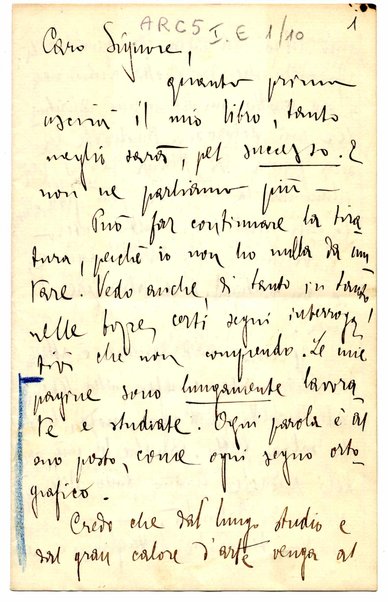 ARC5 I.E 1/10
1
Caro Signore,
quanto prima
uscirà il mio libro, tanto
meglio sarà, pel successo. E
non ne parliamo più —
Può far continuare la tira
tura, perchè io non ho nulla da mu
tare. Vedo anche, di tanto in tanto
nelle bozze, certi segni interroga
tivi che non comprendo. Le mie
pagine sono lungamente lavora
te e studiate. Ogni parola è al
suo posto, come ogni segno orto
grafico.
Credo che dal lungo studio e
dal gran calore d'arte venga al